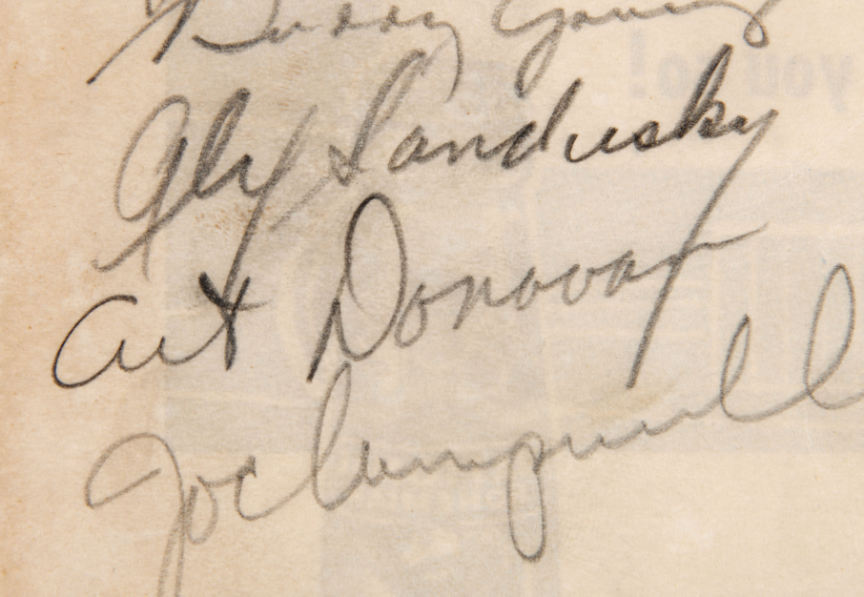 Buddy Young
Alex Sandusky
Art Donovan
Joe Campanell
you to!